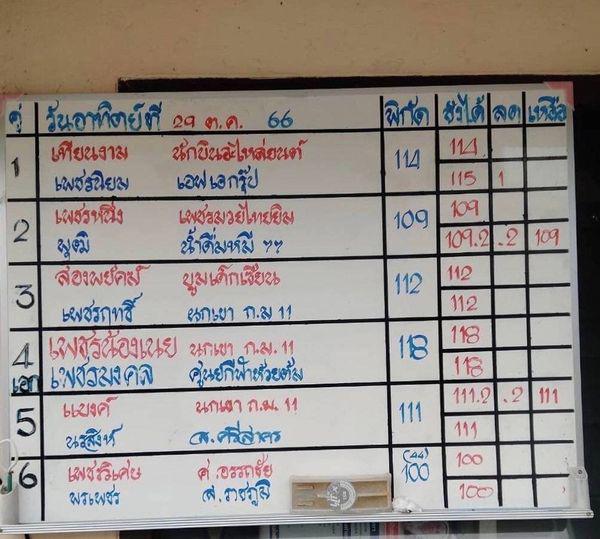 คู่ วันอาทิตย์ที่ 29 ต.ค. 66 พิกัด ชั่งได้ ลด เหลือ
1 เทียนงาม นักบินอะไหล่ยนต์ 114 114
เพชรนิยม เอฟเอกรุ๊ป 115 1
2 เพชรหนึ่ง เพชรมวยไทยยิม 109 109
พุฒิ น้ำดื่มหมี ?? 109.2 .2 109
3 สองพยัคฆ์ บูมเด็กเซียน 112 112
เพชรฤทธิ์ นกเขา ก.ม 11 112
4 เพชรน้องเนย นกเขา ก.ม. 11 118 118
เอก เพชรมงคล ศูนย์กีฬาห้วยต้ม 118
5 แบงค์ นกเขา ก.ม. 11 111 111.2 .2 111
นรสิงห์ ส.ศรีสาคร 111
6 เพชรวิเศษ ศ.อรรถชัย (44) 100 100
พรเพชร ส.ราชภูมิ 100